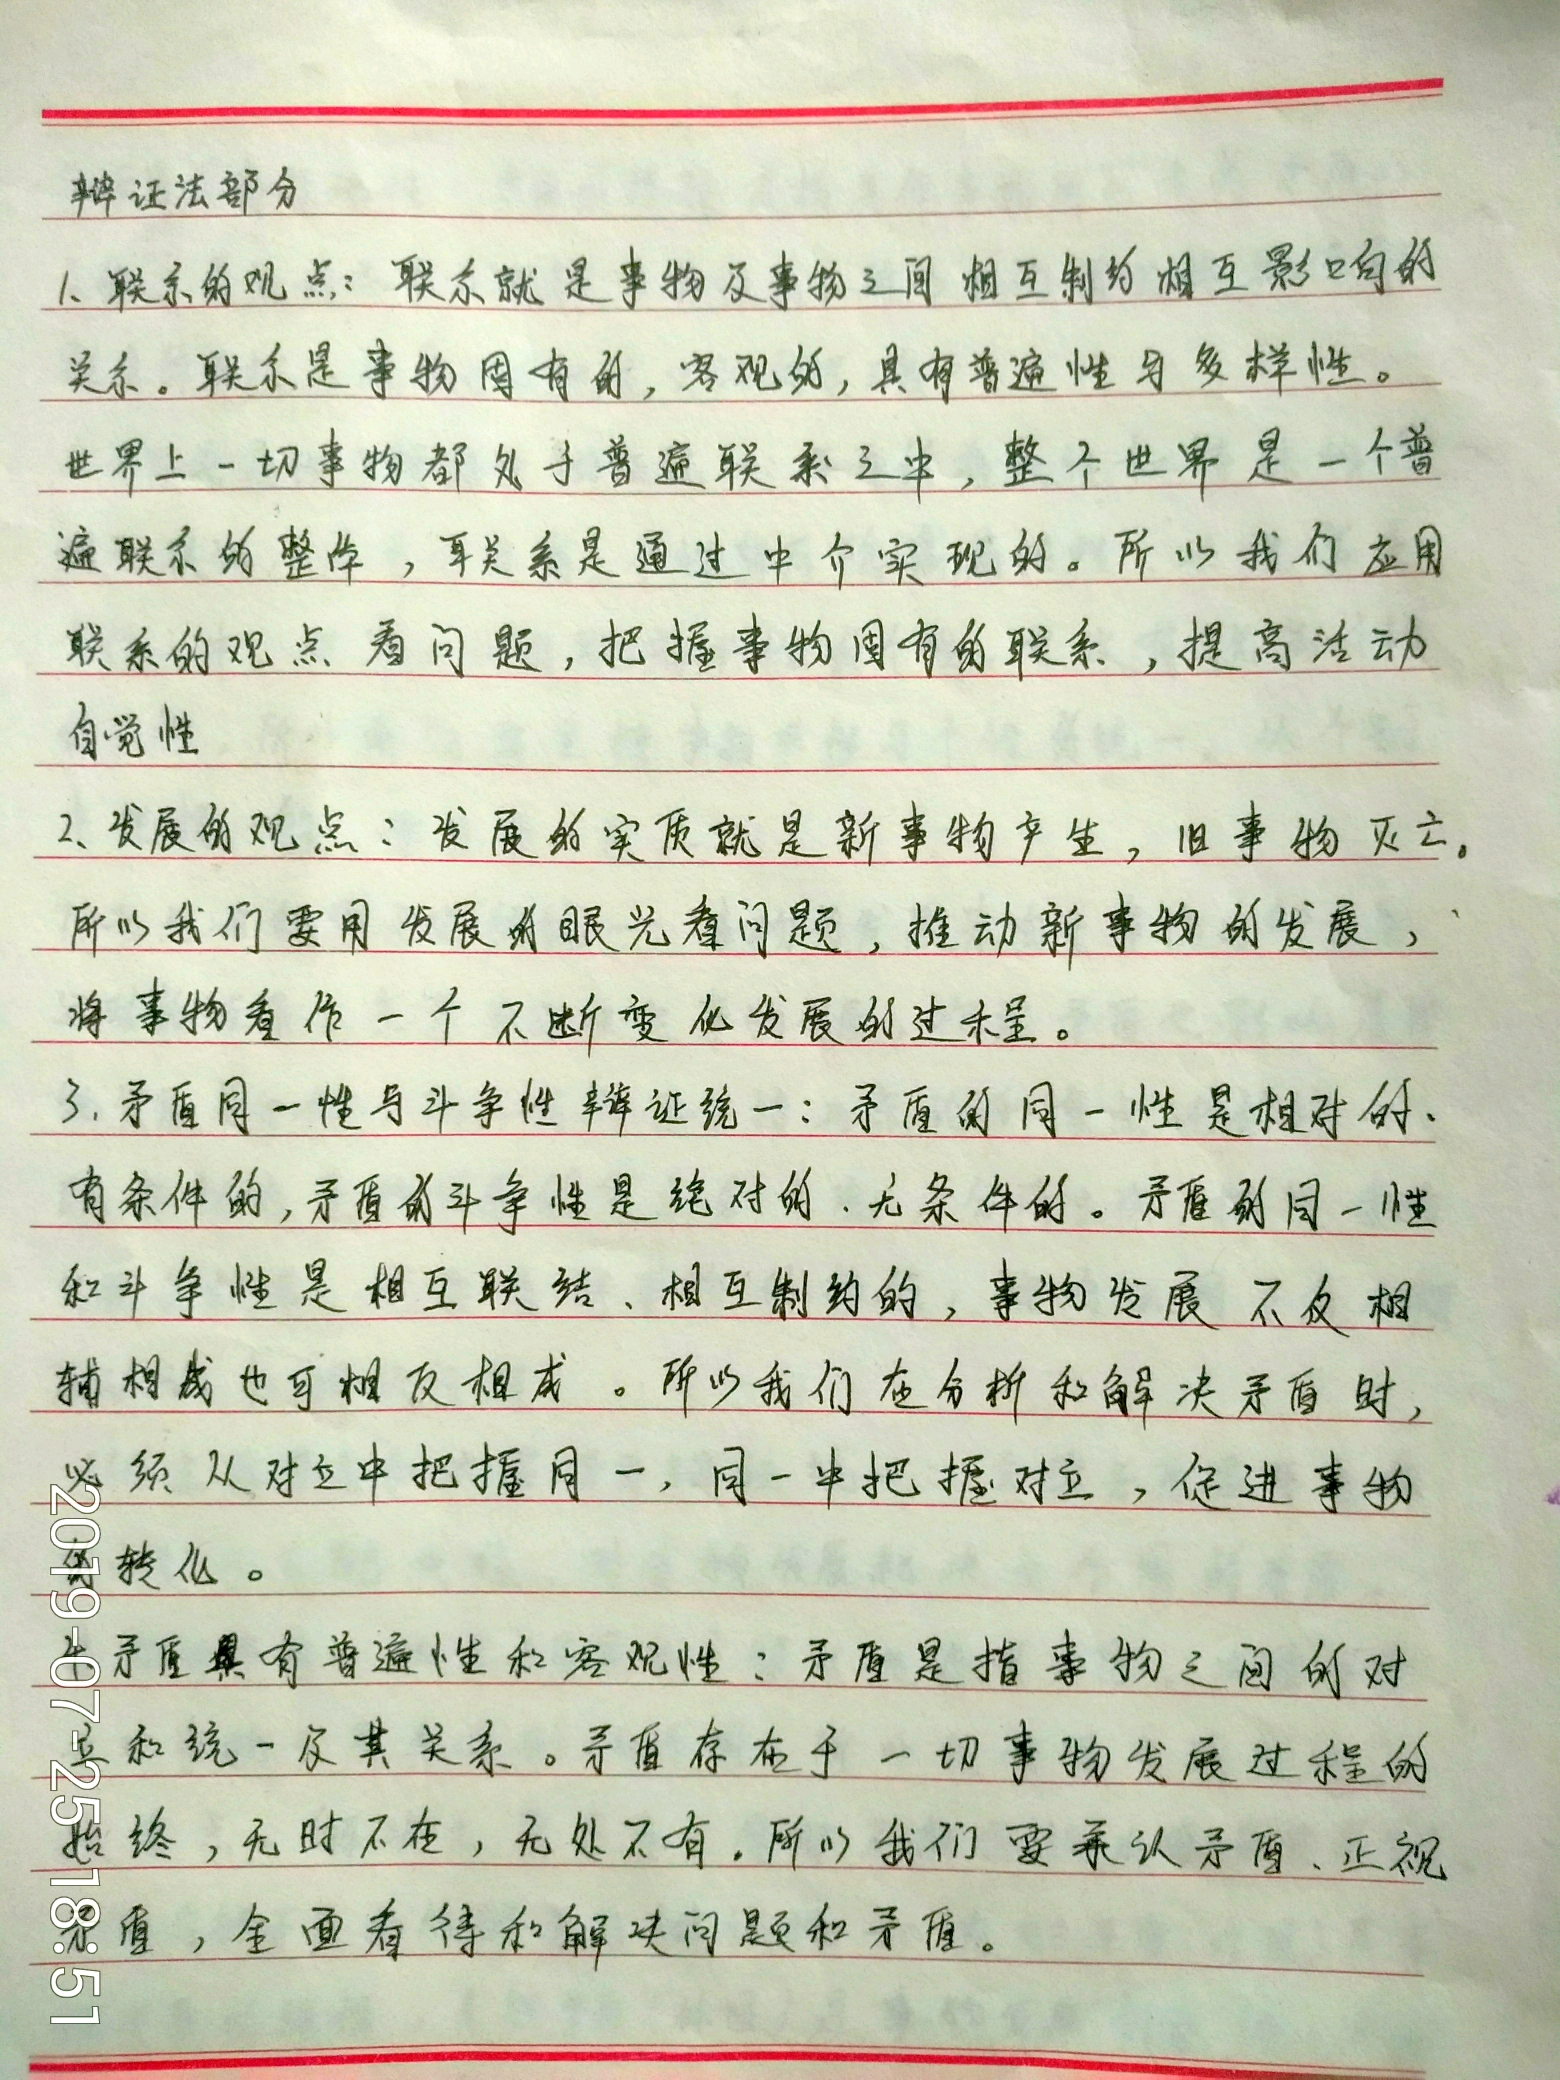 辩证法部分
1、联系的观点：联系就是事物及事物之间相互制约相互影响的
关系。联系是事物固有的，客观的，具有普遍性与多样性。
世界上一切事物都处于普遍联系之中，整个世界是一个普
遍联系的整体，联系是通过中介实现的。所以我们应用
联系的观点看问题，把握事物固有的联系，提高活动
自觉性
2、发展的观点：发展的实质就是新事物产生，旧事物灭亡。
所以我们要用发展的眼光看问题，推动新事物的发展，
将事物看作一个不断变化发展的过程。
3、矛盾同一性与斗争性辩证统一：矛盾的同一性是相对的、
有条件的，矛盾的斗争性是绝对的、无条件的。矛盾的同一性
和斗争性是相互联结、相互制约的，事物发展不仅相
辅相成也可相反相成。所以我们在分析和解决矛盾时，
必须从对立中把握同一，同一中把握对立，促进事物
的转化。
4、矛盾具有普遍性和客观性：矛盾是指事物之间的对
立和统一及其关系。矛盾存在于一切事物发展过程的
始终，无时不在，无处不有。所以我们要承认矛盾、正视
矛盾，全面看待和解决问题和矛盾。
2019-07-25 18:51